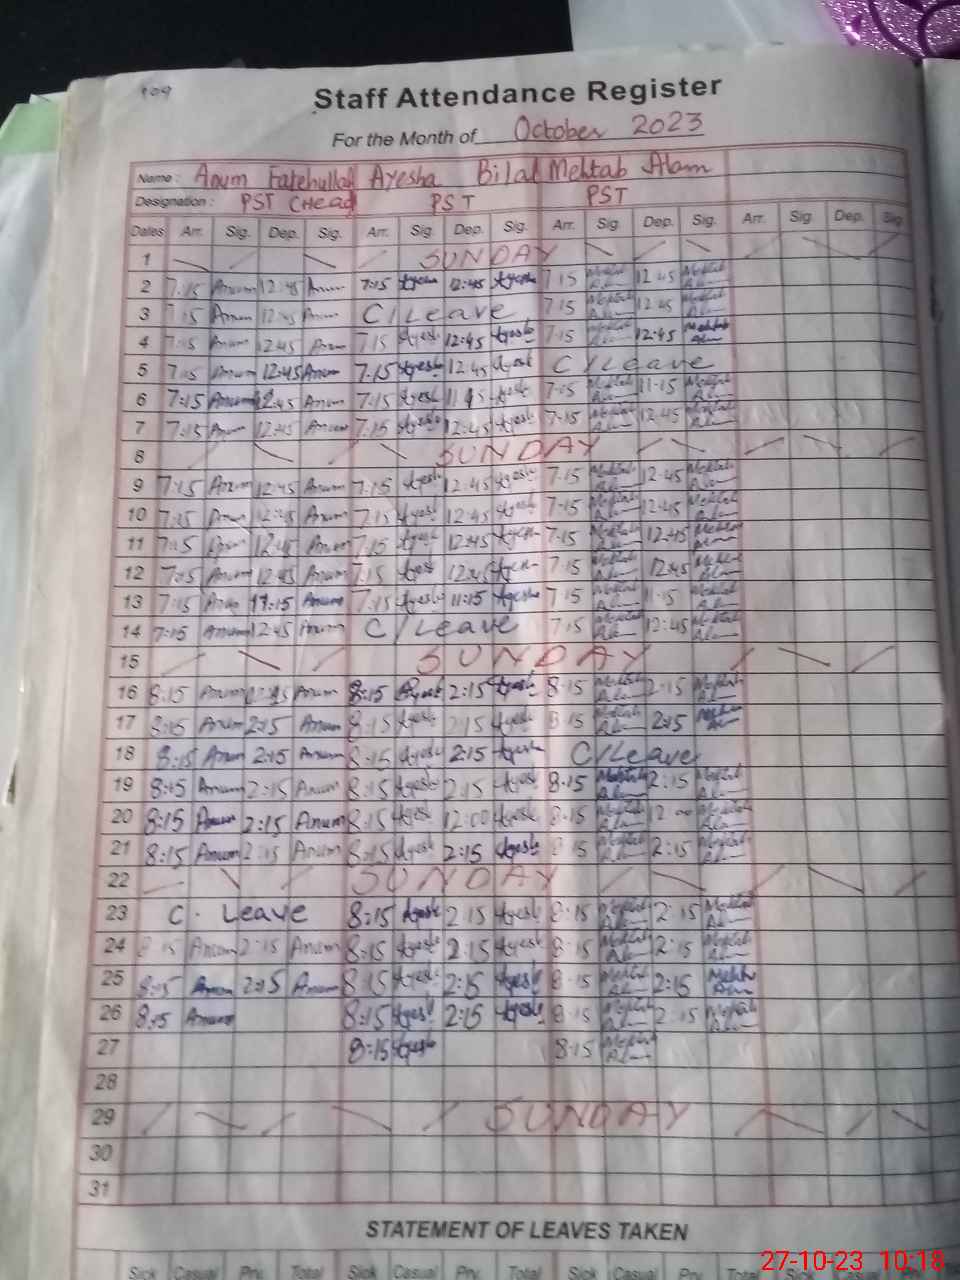 109
Staff Attendance Register
For the Month of October 2023
Name: Anum Fatehullah Ayesha Bilal Mehtab Alam
Designation: PST (Head PST PST
Dates Arr. Sig. Dep. Sig. Arr. Sig. Dep. Sig. Arr. Sig. Dep. Sig. Arr. Sig. Dep. Sig.
1 SUNDAY
2 7:15 Anum 12:45 Anum 7:15 Ayesh 12:45 Ayesh 7:15 Mehtab Alam 12:45 Mehtab Alam
3 7:15 Anum 12:45 Anum C/Leave 7:15 Mehtab Alam 12:45 Mehtab Alam
4 7:15 Anum 12:45 Anum 7:15 Ayesh 12:45 Ayesh 7:15 Mehtab Alam 12:45 Mehtab Alam
5 7:15 Anum 12:45 Anum 7:15 Ayesh 12:45 Ayesh C/Leave
6 7:15 Anum 12:45 Anum 7:15 Ayesh Ayesh 7:15 Mehtab Alam 11:15 Mehtab Alam
7 7:15 Anum 12:45 Anum 7:15 Ayesh 12:45 Ayesh 7:15 Mehtab Alam 12:45 Mehtab Alam
8 SUNDAY
9 7:15 Anum 12:45 Anum 7:15 Ayesh 12:45 Ayesh 7:15 Mehtab Alam 12:45 Mehtab Alam
10 7:15 Anum 12:45 Anum 7:15 Ayesh 12:45 Ayesh 7:15 Mehtab Alam 12:45 Mehtab Alam
11 7:15 Anum 12:45 Anum 7:15 Ayesh 12:45 Ayesh 7:15 Mehtab Alam 12:45 Mehtab Alam
12 7:15 Anum 12:45 Anum 7:15 Ayesh 12:45 Ayesh 7:15 Mehtab Alam 12:45 Mehtab Alam
13 7:15 Anum 11:15 Anum 7:15 Ayesh 11:15 Ayesha 7:15 Mehtab Alam 11:15 Mehtab Alam
14 7:15 Anum 12:45 Anum C/Leave 7:15 Mehtab Alam 12:45 Mehtab Alam
15 SUNDAY
16 8:15 Anum Anum 8:15 Ayesh 2:15 Ayesh 8:15 Mehtab Alam 2:15 Mehtab Alam
17 8:15 Anum 2:15 Anum 8:15 Ayesh 2:15 Ayesh 8:15 Mehtab Alam 2:15 Mehtab Alam
18 8:15 Anum 2:15 Anum 8:15 Ayesh 2:15 Ayesh C/Leave
19 8:15 Anum 2:15 Anum 8:15 Ayesh 2:15 Ayesh 8:15 Mehtab Alam 2:15 Mehtab Alam
20 8:15 Anum 2:15 Anum 8:15 Ayesh 12:00 Ayesh 8:15 Mehtab Alam 12:00 Mehtab Alam
21 8:15 Anum 2:15 Anum 8:15 Ayesh 2:15 Ayesh 8:15 Mehtab Alam 2:15 Mehtab Alam
22 SUNDAY
23 C. Leave 8:15 Ayesh 2:15 Ayesh 8:15 Mehtab Alam 2:15 Mehtab Alam
24 8:15 Anum 2:15 Anum 8:15 Ayesh 2:15 Ayesh 8:15 Mehtab Alam 2:15 Mehtab Alam
25 8:15 Anum 2:15 Anum 8:15 Ayesh 2:15 Ayesh 8:15 Mehtab Alam 2:15 Mehtab Alam
26 8:15 Anum 8:15 Ayesh 2:15 Ayesh 8:15 Mehtab Alam 2:15 Mehtab Alam
27 8:15 Ayesh 8:15 Mehtab Alam
28
29 SUNDAY
30
31
STATEMENT OF LEAVES TAKEN
Sick Casual Prv. Total Sick Casual Prv. Total Sick Casual Prv. Total Sick
27-10-23 10:18